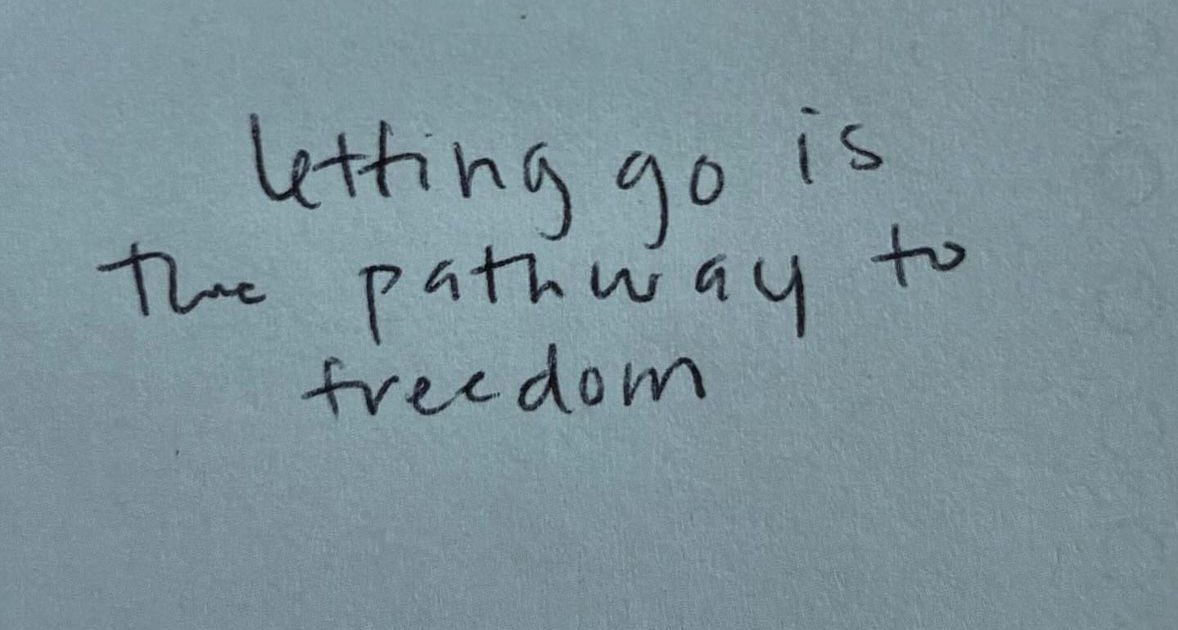 letting go is
the pathway to
freedom